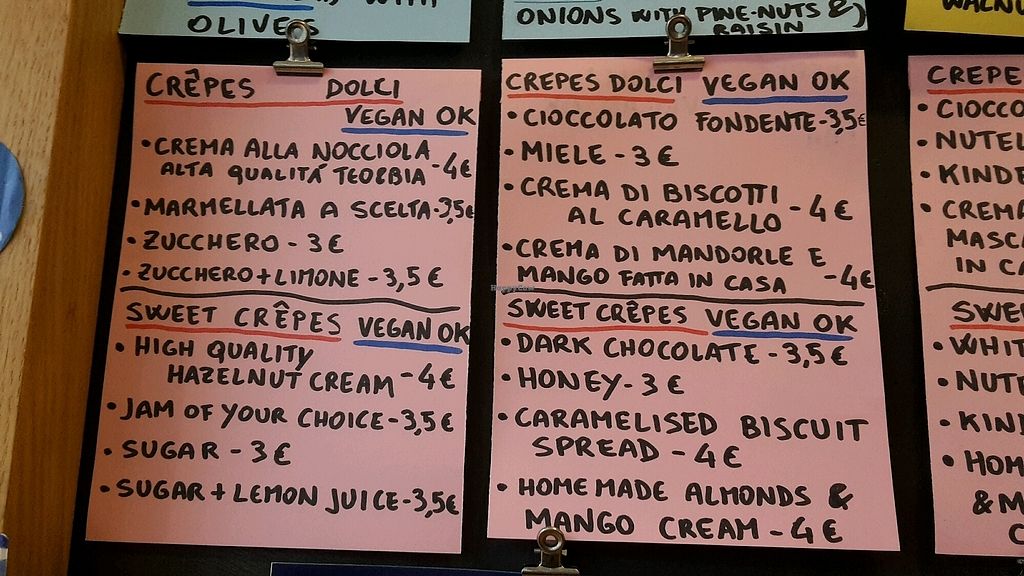 OLIVES
ONIONS WITH PINE-NUTS &
RAISIN
CRÊPES DOLCI
VEGAN OK
• CREMA ALLA NOCCIOLA
ALTA QUALITÁ TEOBBIA - 4€
• MARMELLATA A SCELTA - 3,5€
• ZUCCHERO - 3€
• ZUCCHERO + LIMONE - 3,5€
SWEET CRÊPES VEGAN OK
• HIGH QUALITY
HAZELNUT CREAM - 4€
• JAM OF YOUR CHOICE - 3,5€
• SUGAR - 3€
• SUGAR + LEMON JUICE - 3,5€
CREPES DOLCI VEGAN OK
• CIOCCOLATO FONDENTE - 3,5€
• MIELE - 3€
• CREMA DI BISCOTTI
AL CARAMELLO - 4€
• CREMA DI MANDORLE E
MANGO FATTA IN CASA - 4€
SWEET CRÊPES VEGAN OK
• DARK CHOCOLATE - 3,5€
• HONEY - 3€
• CARAMELISED BISCUIT
SPREAD - 4€
• HOMEMADE ALMONDS &
MANGO CREAM - 4€
CREPE
• CIOCCO
• NUTEL
• KINDE
• CREMA
MASCA
IN CA
SWEE
• WHIT
• NUTE
• KIND
• HOM
& M
C
HappyCow